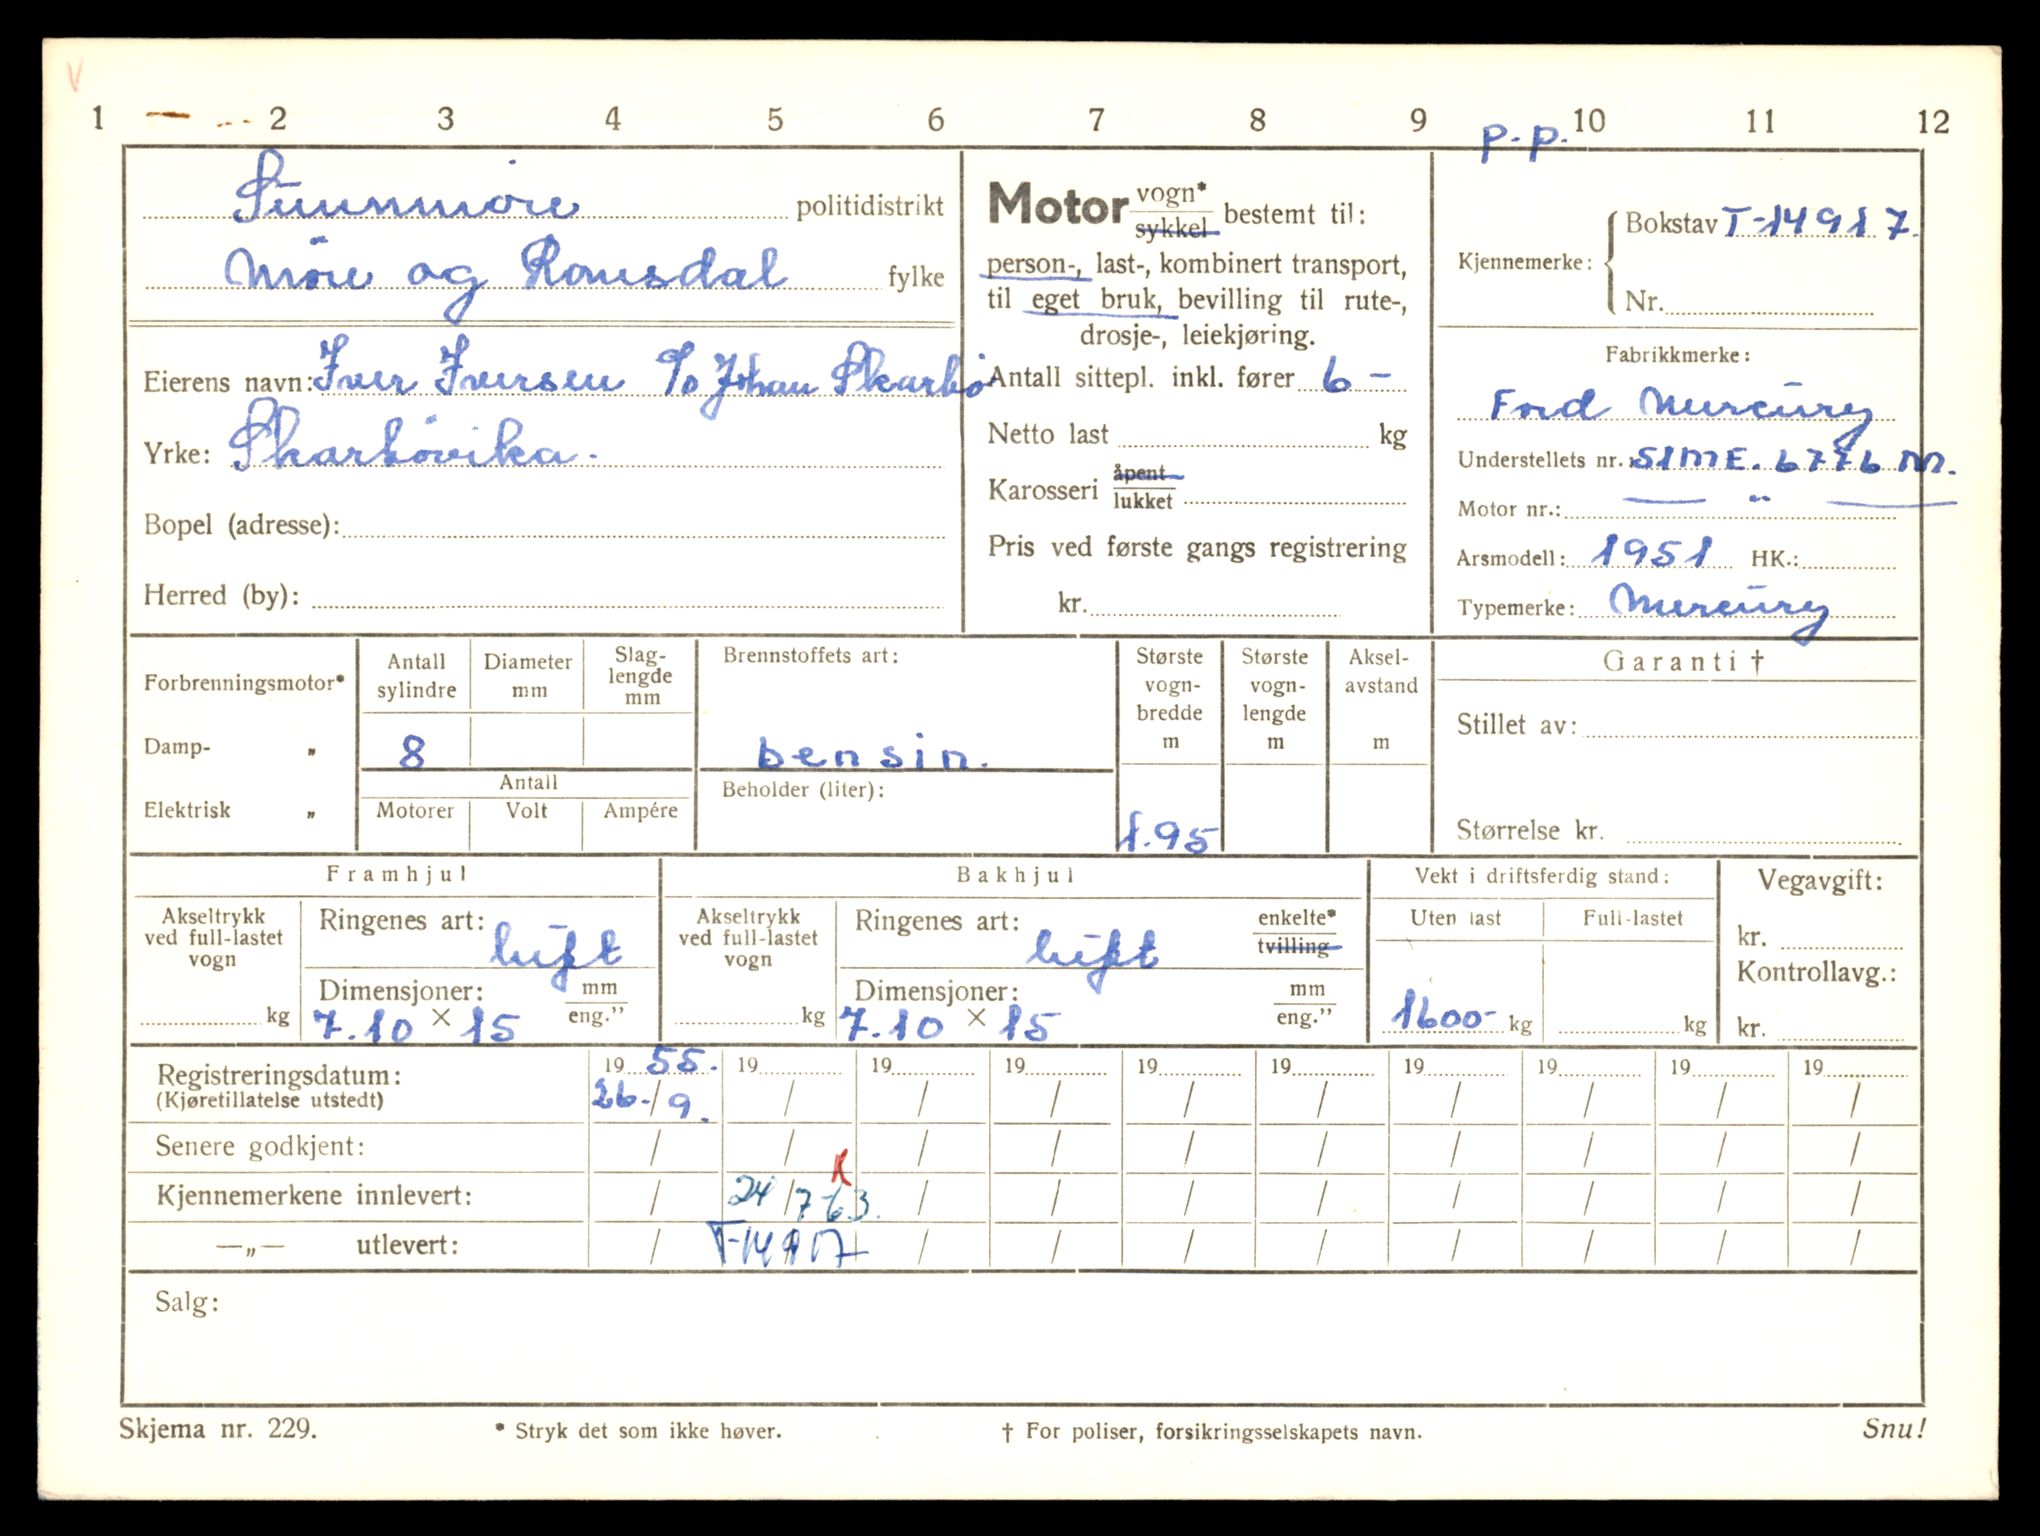 V
1 2 3 4 5 6 7 8 9 10 11 12
p.p.
Sunnmøre politidistrikt
Møre og Romsdal fylke
Eierens navn: Iver Iversen c/o Johan Skarbø
Yrke: Skarbøvika.
Bopel (adresse):
Herred (by):
Motor vogn* sykkel bestemt til:
person-, last-, kombinert transport,
til eget bruk, bevilling til rute-,
drosje-, leiekjøring.
Antall sittepl. inkl. fører 6 -
Netto last kg
Karosseri åpent lukket
Pris ved første gangs registrering
kr.
Kjennemerke: Bokstav T-14917.
Nr.
Fabrikkmerke:
Ford Mercury
Understellets nr. 51ME.6776 M.
Motor nr.: — " —
Arsmodell: 1951 HK.:
Typemerke: Mercury
Forbrenningsmotor*
Damp- „
Elektrisk „
Antall sylindre
Diameter mm
Slag-lengde mm
8
Antall
Motorer Volt Ampére
Brennstoffets art:
bensin.
Beholder (liter):
Største vogn-bredde m
1.95
Største vogn-lengde m
Aksel-avstand m
Garanti †
Stillet av:
Størrelse kr.
Framhjul
Akseltrykk ved full-lastet vogn
kg
Ringenes art: luft
Dimensjoner: mm eng."
7.10 × 15
Bakhjul
Akseltrykk ved full-lastet vogn
kg
Ringenes art: luft enkelte* tvilling
Dimensjoner: mm eng."
7.10 × 15
Vekt i driftsferdig stand:
Uten last Full-lastet
1600- kg kg
Vegavgift:
kr.
Kontrollavg.:
kr.
Registreringsdatum: 19 55. 19 19 19 19 19 19 19 19 19
(Kjøretillatelse utstedt) 26-/9. / / / / / / / / /
Senere godkjent: / / / / / / / / / /
Kjennemerkene innlevert: / 24/7-63. / / / / / / / /
—„— utlevert: / T-14917 / / / / / / / /
Salg:
Skjema nr. 229. * Stryk det som ikke høver. † For poliser, forsikringsselskapets navn. Snu!